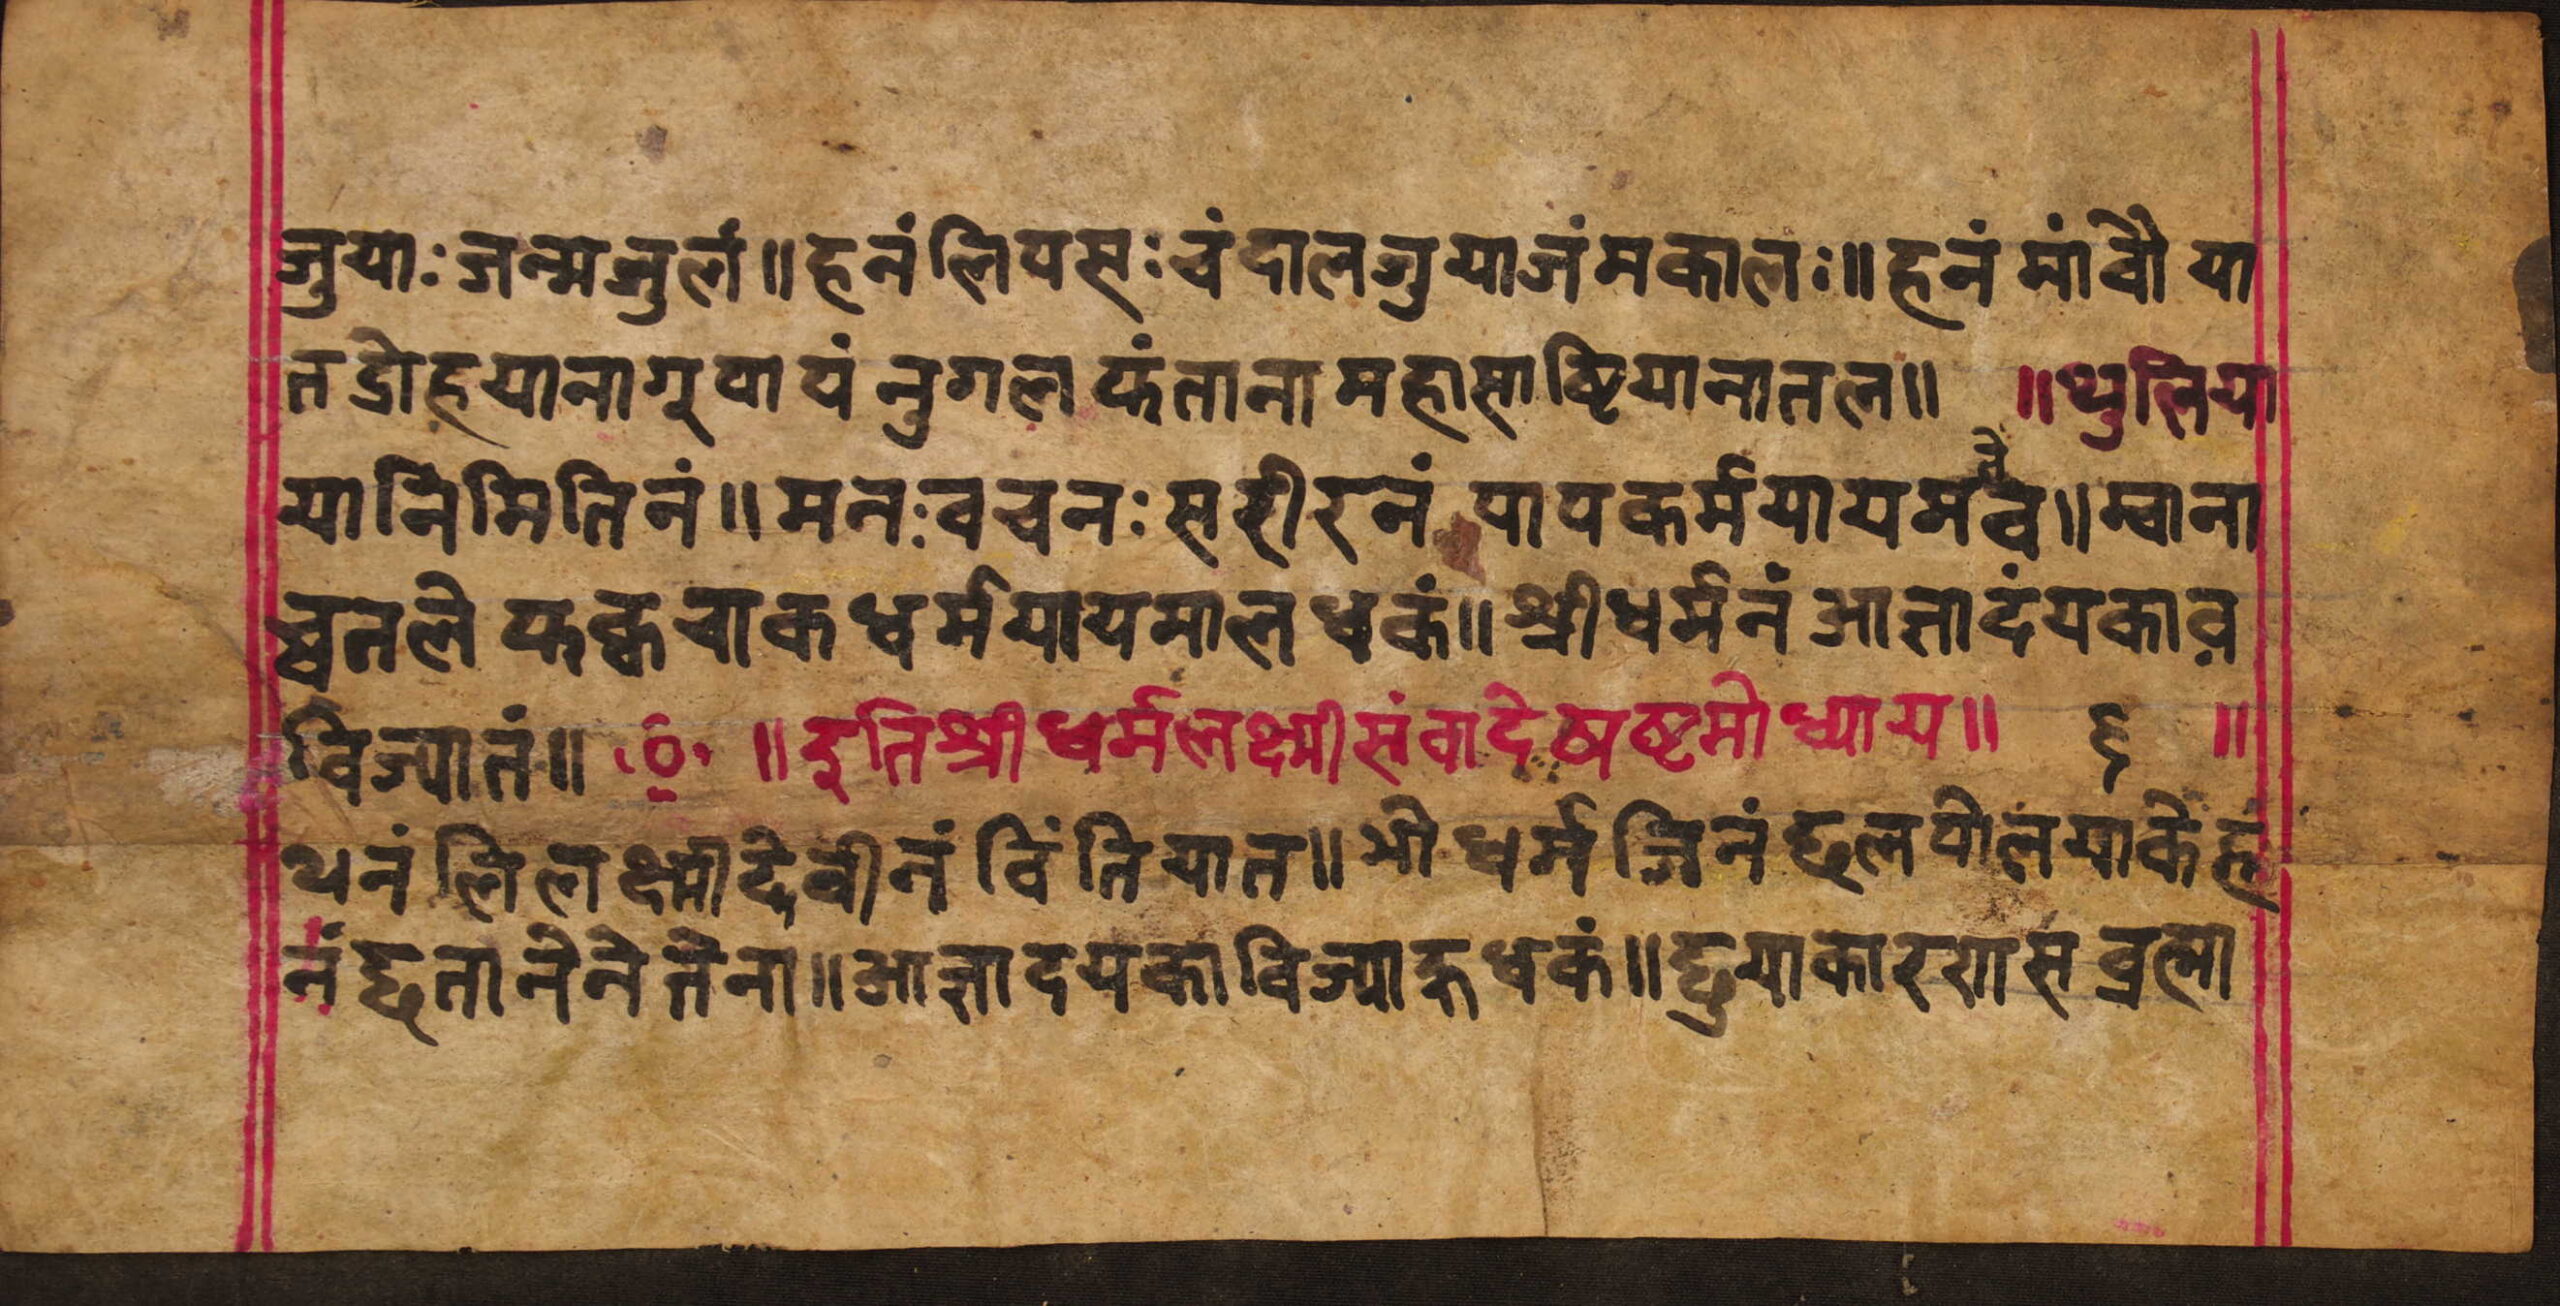 जुयाः जन्मजुलं॥ हनं लिपसः चंदालजुयाजंमकालः॥ हनं मांवौ या
तद्रोहयानागूपापं नुगल फंताना महासास्ष्टियानातल॥ ॥थुलिया
यानिमितिनं॥ मनःवचनः सरीरनं पापकर्मयायमतेव॥ म्वाना
च्वतले फक्वचाक धर्मयायमाल धकं॥ श्रीधर्मनं आज्ञादंयकाव
विज्यातं॥ ॥इतिश्रीधर्मलक्ष्मीसंवादे षष्टमोध्याय॥ ६ ॥
थनं लिलक्ष्मीदेवीनं विंतियात॥ भो धर्म जिनं छलपोलयाकेहं
नं छतानेनेतेना॥ आज्ञादयकाविज्याहु धकं॥ छुयाकारणस ब्रह्मा